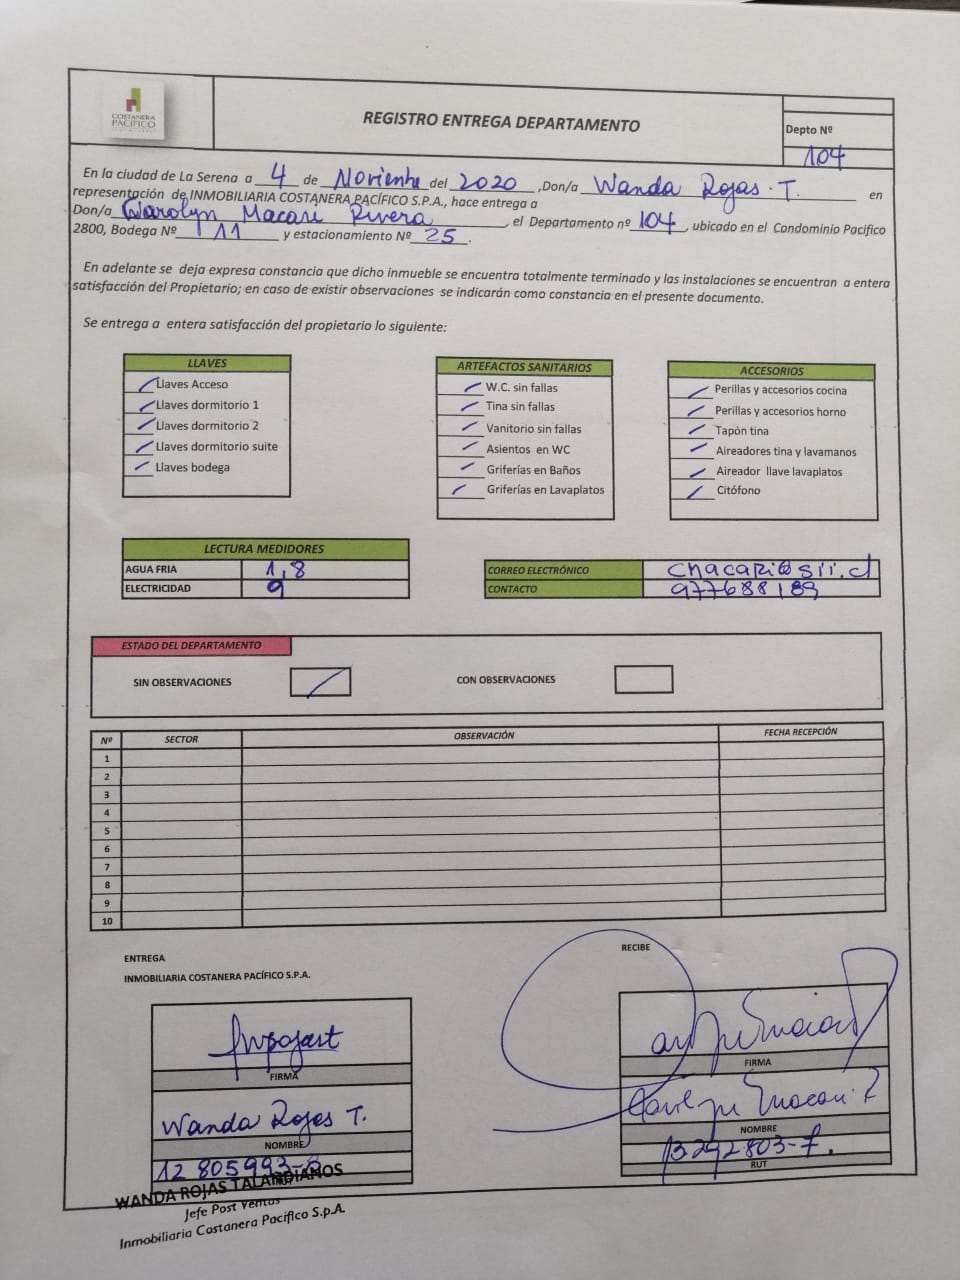 COSTANERA
PACÍFICO
REGISTRO ENTREGA DEPARTAMENTO
Depto Nº
104
En la ciudad de La Serena a 4 de Noviembre del 2020 ,Don/a Wanda Rojas T. en
representación de INMOBILIARIA COSTANERA PACÍFICO S.P.A., hace entrega a
Don/a Carolyn Macari Rivera, el Departamento nº 104, ubicado en el Condominio Pacifico
2800, Bodega Nº 111 y estacionamiento Nº 25.
En adelante se deja expresa constancia que dicho inmueble se encuentra totalmente terminado y las instalaciones se encuentran a entera
satisfacción del Propietario; en caso de existir observaciones se indicarán como constancia en el presente documento.
Se entrega a entera satisfacción del propietario lo siguiente:
LLAVES
Llaves Acceso
Llaves dormitorio 1
Llaves dormitorio 2
Llaves dormitorio suite
Llaves bodega
ARTEFACTOS SANITARIOS
W.C. sin fallas
Tina sin fallas
Vanitorio sin fallas
Asientos en WC
Griferías en Baños
Griferías en Lavaplatos
ACCESORIOS
Perillas y accesorios cocina
Perillas y accesorios horno
Tapón tina
Aireadores tina y lavamanos
Aireador llave lavaplatos
Citófono
LECTURA MEDIDORES
AGUA FRIA 1,8
ELECTRICIDAD 9
CORREO ELECTRÓNICO
CONTACTO 977688189
ESTADO DEL DEPARTAMENTO
SIN OBSERVACIONES
CON OBSERVACIONES
Nº SECTOR OBSERVACIÓN FECHA RECEPCIÓN
1
2
3
4
5
6
7
8
9
10
ENTREGA
INMOBILIARIA COSTANERA PACÍFICO S.P.A.
FIRMA
Wanda Rojas T.
NOMBRE
12 805993-
WANDA ROJAS TALANDIANOS
Jefe Post Ventas
Inmobiliaria Costanera Pacífico S.p.A
RECIBE
FIRMA
NOMBRE
13292803-7.
RUT